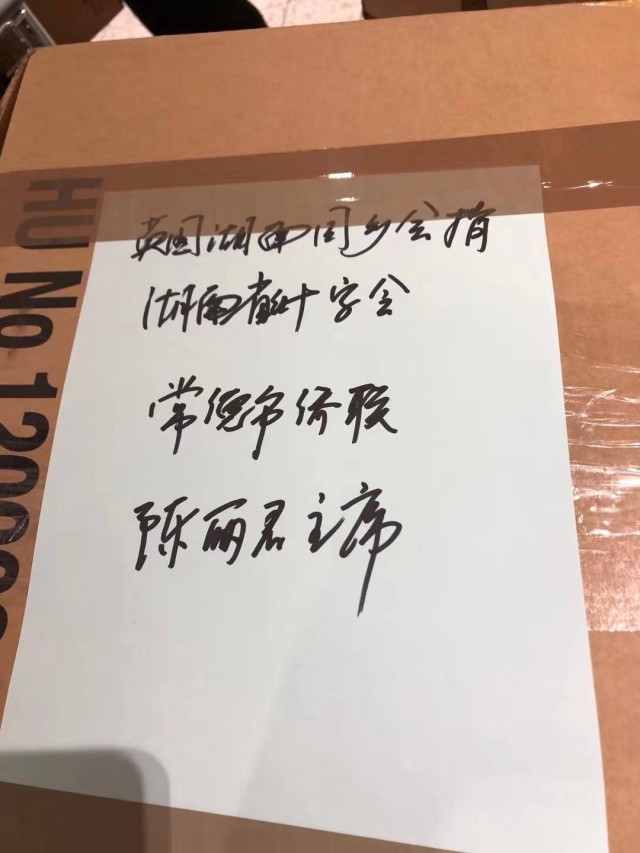 英国湖南同乡会捐
湖南省红十字会
常德市侨联
陈丽君主席
HU No 12000